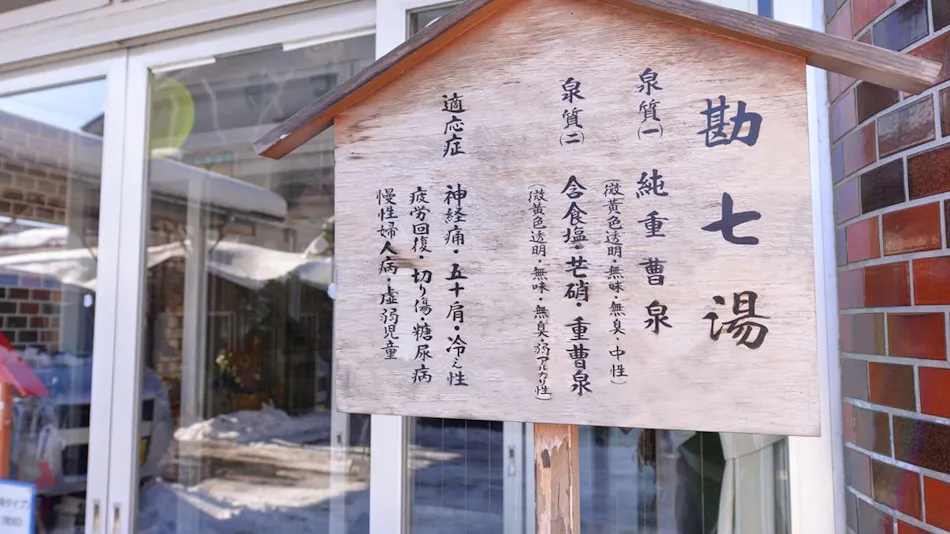 勘七湯
泉質(一) 純重曹泉
(微黄色透明・無味・無臭・中性)
泉質(二) 含食塩・芒硝・重曹泉
(微黄色透明・無味・無臭・弱アルカリ性)
適応症 神経痛・五十肩・冷え性
疲労回復・切り傷・糖尿病
慢性婦人病・虚弱児童